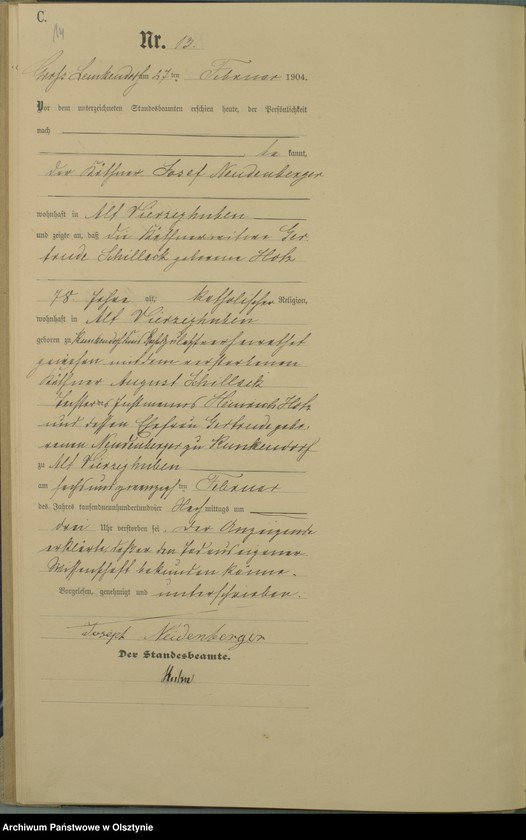 C.
14
Nr. 13.
Groß Lemkendorf am 27 ten Februar 1904.
Vor dem unterzeichneten Standesbeamten erschien heute, der Persönlichkeit
nach
be kannt,
der Käthner Josef Neudenberger
wohnhaft in Alt Vierzighuben
und zeigte an, daß die Käthnerwittwe Ger
trude Schilleck geborene Hotz
78 Jahre alt, katholischer Religion,
wohnhaft in Alt Vierzighuben
geboren zu Kunkendorf zuletzt verheirathet
gewesen mit dem verstorbenen
Käthner August Schilleck
Tochter des Heinrich Hotz
und dessen Ehefrau Gertrude gebo-
renen Neudenberger zu Kunkendorf
zu Alt Vierzighuben
am sechsundzwanzigsten Februar
des Jahres tausendneunhundertundvier Nachmittags um
drei Uhr verstorben sei. Der Anzeigende
erklärte, daß er den Tod aus eigener
Wissenschaft bekunden könne.
Vorgelesen, genehmigt und unterschrieben.
Joseph Neudenberger
Der Standesbeamte.
Archiwum Państwowe w Olsztynie